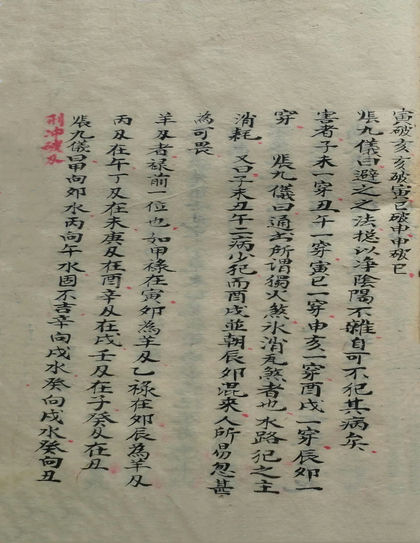 寅破亥亥破寅巳破申申破巳
張九儀曰避之之法摠以净陰陽不雜自可不犯其病矣
害者子未一穿丑午一穿寅巳一穿申亥一穿酉戌一穿辰卯一
穿 張九儀曰通書所謂獨火煞氷消瓦煞者也水路犯之主
消耗 又曰子未丑午二病少犯而酉戌並朝辰卯混来人所易忽甚
為可畏
羊刄者禄前一位也如甲禄在寅卯為羊刄乙禄在卯辰為羊刄
丙刄在午丁刄在未庚刄在酉辛刄在戌壬刄在子癸刄在丑
張九儀曰甲向卯水丙向午水固不吉辛向戌水癸向戌水癸向丑
刑冲破刄